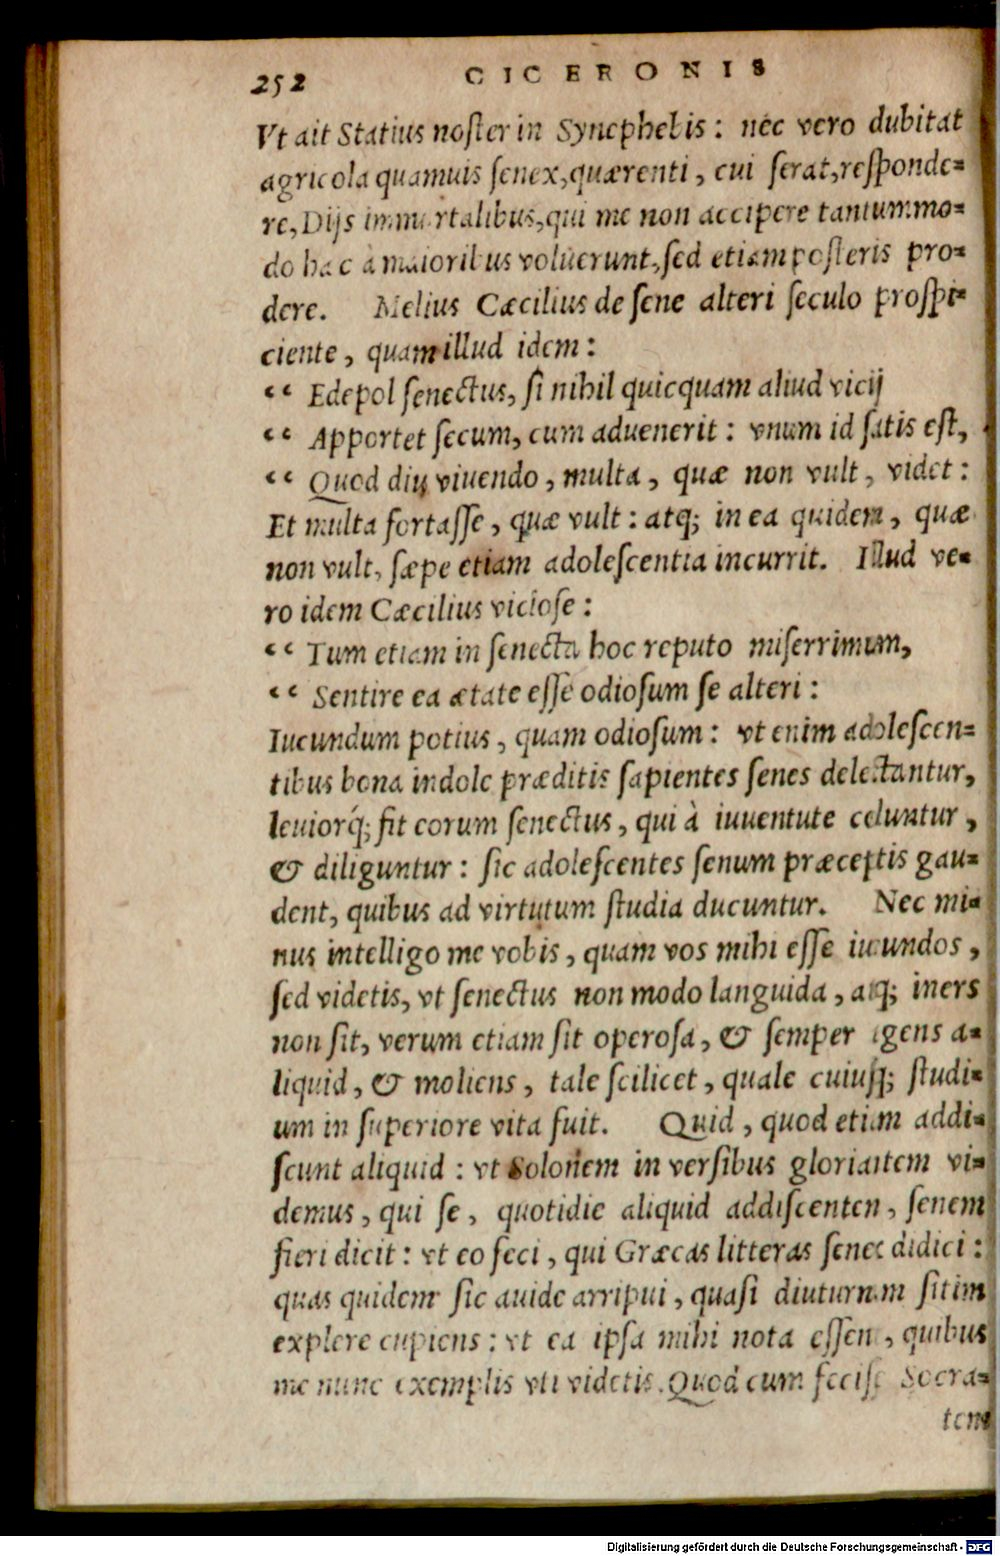 252 CICERONIS
Vt ait Statius noſter in Synephebis: nec vero dubitat
agricola quamuis ſenex, quærenti, cui ſerat, reſponde-
re, Dijs immortalibus, qui me non accipere tantummo-
do hæc à maioribus voluerunt, ſed etiam poſteris pro-
dere. Melius Cæcilius de ſene alteri ſeculo proſpi-
ciente, quam illud idem:
“ Edepol ſenectus, ſi nihil quicquam aliud vicij
“ Apportet ſecum, cum aduenerit: vnum id ſatis eſt,
“ Quod diu viuendo, multa, quæ non vult, videt:
Et multa fortaſſe, quæ vult: atq; in ea quidem, quæ
non vult, ſæpe etiam adoleſcentia incurrit. Illud ve-
ro idem Cæcilius vicioſe:
“ Tum etiam in ſenecta hoc reputo miſerrimum,
“ Sentire ea ætate eſſe odioſum ſe alteri:
Iucundum potius, quam odioſum: vt enim adoleſcen-
tibus bona indole præditis ſapientes ſenes delectantur,
leuiorq́; fit eorum ſenectus, qui à iuuentute coluntur,
& diliguntur: ſic adoleſcentes ſenum præceptis gau-
dent, quibus ad virtutum ſtudia ducuntur. Nec mi-
nus intelligo me vobis, quam vos mihi eſſe iucundos,
ſed videtis, vt ſenectus non modo languida, atq; iners
non ſit, verum etiam ſit operoſa, & ſemper agens a-
liquid, & moliens, tale ſcilicet, quale cuiuſq; ſtudi-
um in ſuperiore vita fuit. Quid, quod etiam addi-
ſcunt aliquid: vt Solonem in verſibus gloriantem vi-
demus, qui ſe, quotidie aliquid addiſcenten, ſenem
fieri dicit: vt eo feci, qui Græcas litteras ſenex didici:
quas quidem ſic auide arripui, quaſi diuturnam ſitim
explere cupiens: vt ea ipſa mihi nota eſſent, quibus
me nunc exemplis vti videtis. Quod cum feciſſe Socra-
tem
Digitalisierung gefördert durch die Deutsche Forschungsgemeinschaft - DFG